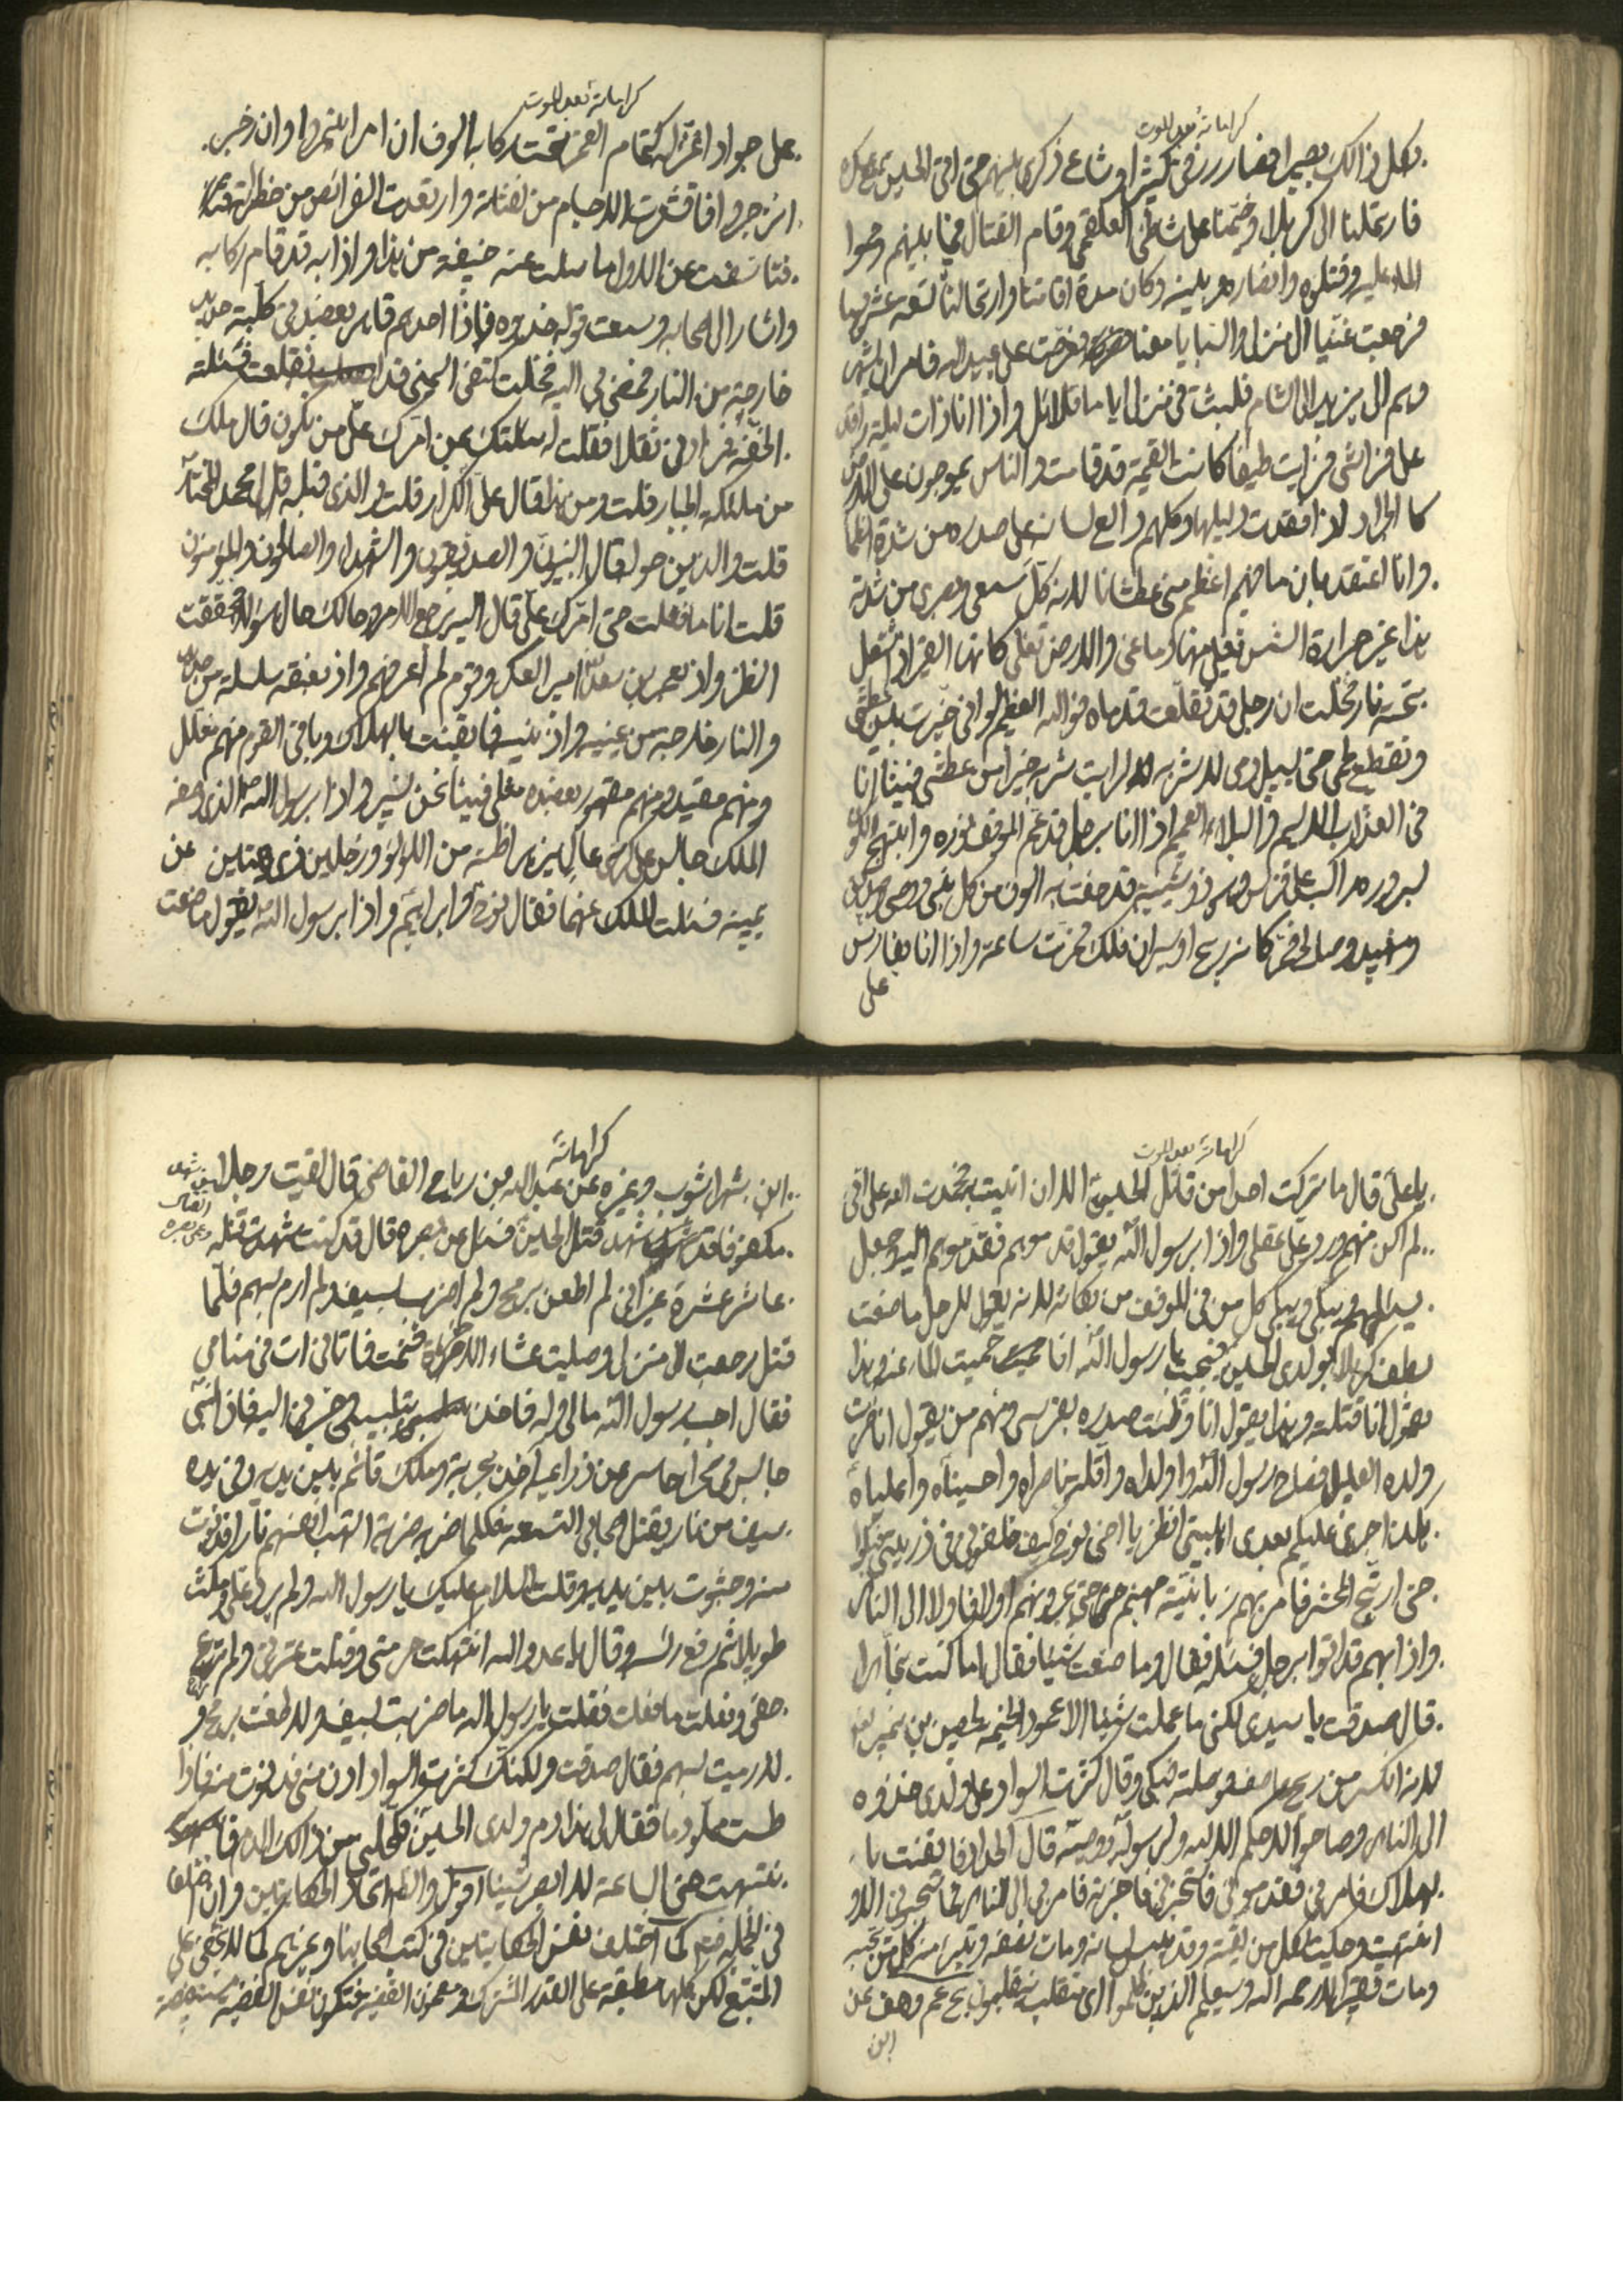 كراماته بعد الموت
بكل ذالك بصيرا فصار رزقي كثيرا وشاع ذكري بينهم حتى اتى الحسين مع عسكره
فارتحلنا الى كربلا وخيمنا على شاطئ العلقمي وقام القتال فيما بينهم وحموا
الماء عليه وقتلوه وانصاره وبنيه وكان مدة اقامتنا وارتحالنا تسعة عشر يوما
فرجعت غنيا الى منزلي والسبايا معنا فعرضت على عبيد الله فامر ان يشهر
وهم الى يزيد الى الشام فلبثت في منزلي اياما قلائل واذا انا ذات ليلة راقد
على فراشي فرايت طيفا كانت القيمة قد قامت والناس يموجون على الارض
كالجراد اذا فقدت دليلها وكلهم دالع لسانه على صدره من شدة الظما
وانا اعتقد بان ما فيهم اعظم مني عطشا لانه كل سمعي وبصري من شدته
هذا غير حرارة الشمس تغلي منها دماغي والارض تغلي كانها القير اذا اشعل
تحته نار فخلت ان رجلي قد تقلعت قدماه فوالله العظيم لو اني خيرت بين عطشي
وتقطع لحمي حتى يسيل دمي لاشربه لرايت شربه خيرا من عطشي فبينا انا
في العذاب الاليم والبلاء العميم اذا انا برجل قد عم الموقف نوره وابتهج الكون
لسروره راكب على فرس وهو ذو شيبة قد حفت به الوف من كل نبي ووصي وصديق
وشهيد وصالح فمر كانه ريح او سيران فلك فمرت ساعة واذا انا بفارس
على
كراماته بعد الموت
على جواد اغر له وجه كتمام القمر تحت ركابه الوف ان امر ائتمروا وان زجر
انزجروا فاقشعرت الاجسام من لفتاته وارتعدت الفرائص من خطراته
فتاسفت عن الاول ما سئلت عنه خيفة من هذا واذا به قد قام في ركابه
واشار الى اصحابه وسمعت قوله خذوه فاذا احدهم قاهر بعضدي كلبة حديد
خارجة من النار فمضى بي اليه فخلت كتفي اليمنى قد انقلعت فسئلته
الخفة فزادني ثقلا فقلت له سئلتك بمن امرك علي من تكون قال ملك
من ملئكة الجبار قلت ومن هذا قال علي الكرار قلت والذي قبله قال محمد المختار
قلت والذين حوله قال النبيون والصديقون والشهداء والصالحون والمؤمنون
قلت انا ما فعلت حتى امرك علي قال اليه يرجع الامر وحالك حال هؤلاء فحققت
النظر واذ بعمر بن سعد امير العسكر وقوم لم اعرفهم واذ بعنقه سلسلة من حديد
والنار خارجة من عينيه واذنيه فايقنت بالهلاك وباقي القوم منهم مغلل
ومنهم مقيد ومنهم مقهور بعضده مثلي فبينا نحن نسير واذا برسول الله الذي وصفه
الملك جالس على كرسي عال يزهر اظنه من اللؤلؤ ورجلين ذي شيبتين عن
يمينه فسئلت الملك عنهما فقال نوح وابراهيم واذا برسول الله يقول ما صنعت
كراماته بعد الموت
يا علي قال ما تركت احدا من قاتل الحسين الا وان اتيت به فحمدت الله على اني
لم اكن منهم ورد علي عقلي واذا برسول الله يقول قدموهم فقدموهم اليه وجعل
يسئلهم ويبكي ويبكي كل من في الموقف من بكائه لانه يقول للرجل ما صنعت
بطف كربلا بولدي الحسين فيجيب يا رسول الله انا حميت الماء عنه وهذا
يقول انا قتلته وهذا يقول انا وطئت صدره بفرسي ومنهم من يقول انا ضربت
ولده العليل فصاح رسول الله وا ولداه وا قلة ناصراه وا حسيناه وا علياه
هكذا جرى عليكم بعدي اهل بيتي انظر يا اخي نوح كيف خلفوني في ذريتي فبكوا
حتى ارتج المحشر فامر بهم زبانية جهنم يجرونهم اولا فاولا الى النار
واذا بهم قد اتوا برجل فسئله فقال وما صنعت شيئا فقال اما كنت نجارا
قال صدقت يا سيدي لكني ما عملت شيئا الا عمود الخيمة لحصين بن نمير
لانه انكسر من ريح عاصف فوصلته فبكى وقال كثرت السواد على ولدي خذوه
الى النار وصاحوا لا حكم الا لله ولرسوله ووصيه قال الحداد فايقنت با
لهلاك فامر بي فقدموني فاستخبرني فاخبرته فامر بي الى النار فما سحبوني الا و
انتبهت وحكيت لكل من لقيته وقد يبس لسانه ومات نصفه وتبرا منه كل من يحبه
ومات فقيرا لا رحمه الله وسيعلم الذين ظلموا اى منقلب ينقلبون
ابن
كراماته
ابن شهراشوب وغيره عن عبد الله بن رباح القاضي قال لقيت رجلا
مكفوفا قد شهد قتل الحسين فسئل عن بصره قال قد كنت شهدت قتله
عاشر عشرة غير اني لم اطعن برمح ولم اضرب بسيف ولم ارم بسهم فلما
قتل رجعت الى منزلي وصليت عشاء الاخرة ونمت فاتاني ات في منامي
فقال اجب رسول الله مالي وله فاخذ بتلبيبي وجرني اليه فاذا النبي
جالس في صحراء حاسر عن ذراعيه اخذ بحربة وملك قائم بين يديه وفي يده
سيف من نار يقتل اصحابي التسعة فكلما ضربه ضربة التهب انفسهم نارا فدنوت
منه وجثوت بين يديه وقلت السلام عليك يا رسول الله ولم يرد علي ومكث
طويلا ثم رفع راسه وقال يا عدو الله انتهكت حرمتي وقتلت عترتي ولم ترع
حقي وفعلت ما فعلت فقلت يا رسول الله ما ضربت بسيف ولا طعنت برمح و
لا رميت بسهم فقال صدقت ولكنك كثرت السواد ادن مني فدنوت منه فاذا
طست مملو دما فقال لي هذا دم ولدي الحسين فكحلني من ذالك الدم فا
نتبهت حتى الساعة لا ابصر شيئا اقول والظاهر اتحاد الحكايتين وان اختلفا
في الجملة كما اختلف نفس الحكايتين في كتب اصحابنا وغيرهم كما لا يخفى على
المتتبع لكن كلها مطبقة على القدر المشترك ومضمون القضية فتكون نفس القضية مستفيضة